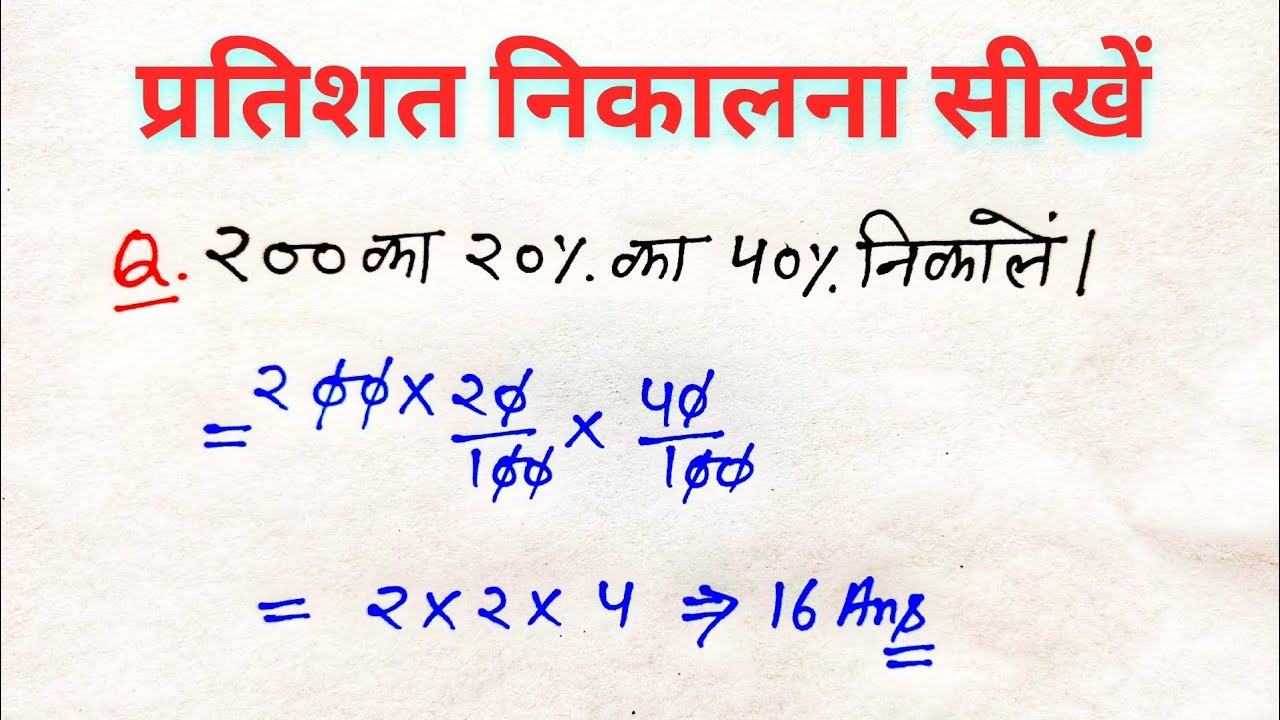 प्रतिशत निकालना सीखें
Q. 200 का 20% का 40% निकालें।
= 200 × 20/100 × 40/100
= 2 × 2 × 4 ⇒ 16 Ans